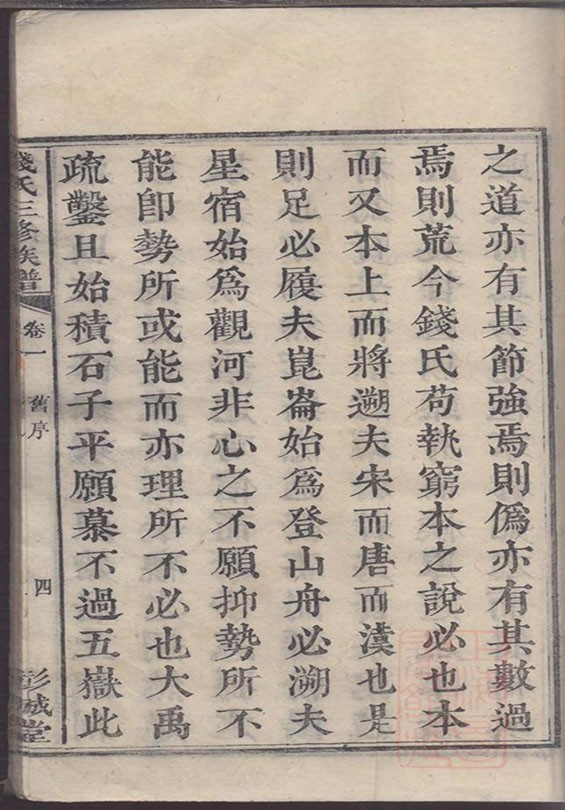 之道亦有其節強焉則僞亦有其數過
焉則荒今錢氏苟執窮本之說必也本
而又本上而將遡夫宋而唐而漢也是
則足必履夫崑崙始爲登山舟必溯夫
星宿始爲觀河非心之不願抑勢所不
能卽勢所或能而亦理所不必也大禹
疏鑿且始積石子平願慕不過五嶽此
錢氏三修族譜
卷一
舊序
四
彭城堂